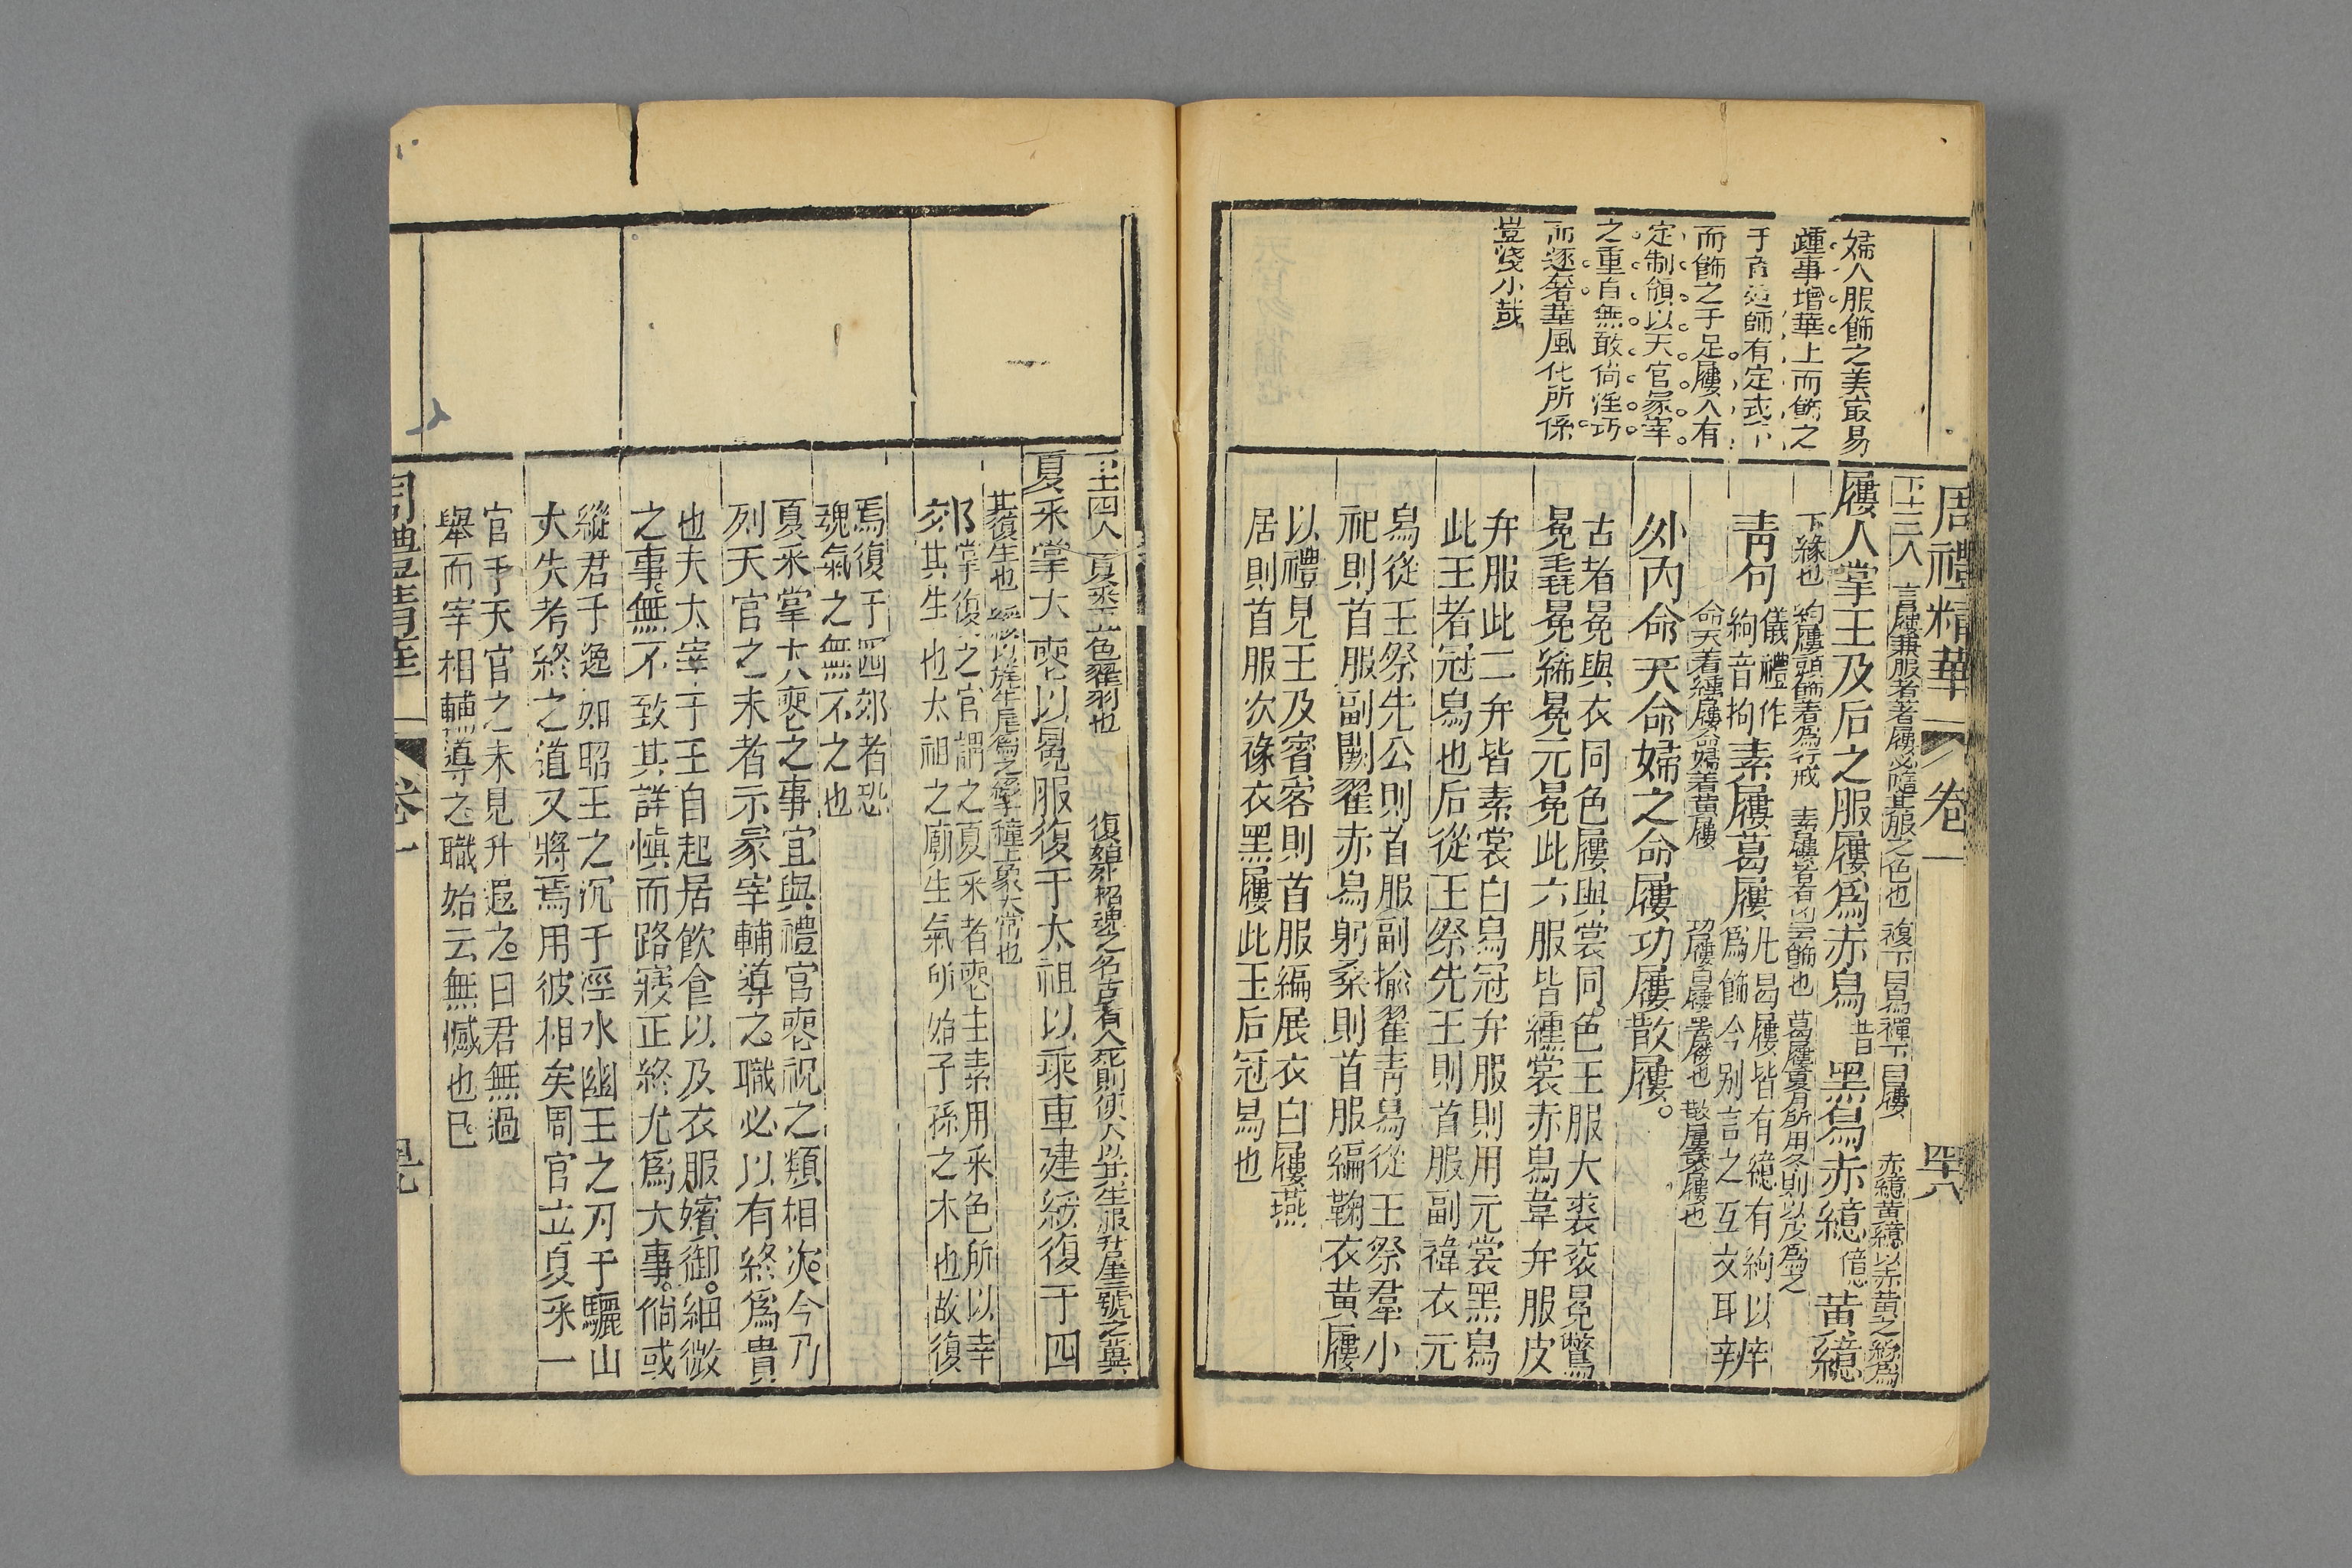 周禮精華 卷一 四十八
婦人服飾之美最易
踵事增華上而飾之
于首追師有定式下
而飾之于足屨人有
定制領以天官冡宰
之重自無敢尚淫巧
而逐奢華風化所係
豈淺小哉
下士二人 言屨兼服者著屨必隨其服之色也 複下曰舄禪下曰屨 赤繶黃繶以赤黃之絲爲
屨人掌王及后之服屨爲赤舄 昔 黑舄赤繶 億 黃繶
下緣也 絇屨頭飾者爲行戒 素屨者有凶去飾也 葛屨夏有所用冬則以皮爲之
青句 儀禮作 素屨葛屨 凡曷屨皆有繶有絇以辨
絇音拘 爲飾今别言之互文耳辨
命夫着纁屨命婦着黃屨 功屨白屨黑屨也 散屨喪屨也
外內命夫命婦之命屨功屨散屨
古者冕與衣同色屨與裳同色王服大裘袞冕鷩
冕毳冕絺冕元冕此六服皆纁裳赤舄韋弁服皮
弁服此二弁皆素裳白舄冠弁服則用元裳黑舄
此王者冠舄也后從王祭先王則首服副褘衣元
舄從王祭先公則首服副揄翟青舄從王祭羣小
祀則首服副闕翟赤舄躬桑則首服編鞠衣黃屨
以禮見王及賓客則首服編展衣白屨燕
居則首服次褖衣黑屨此王后冠舄也
下士四人 夏采五色翟羽也 復始死招魂之名古者人死則使人以其生服升屋三號之冀
夏采掌大喪以冕服復于大祖以乘車建綏復于四
其復生也 綏以旄牛尾爲之綴于橦上象大常也
郊 掌復之官謂之夏采者喪主素用采色所以幸
其生也太祖之廟生氣所始子孫之本也故復
焉復于四郊者恐
魂氣之無不之也
夏采掌大喪之事宜與禮官喪祝之類相次今乃
列天官之末者示冡宰輔導之職必以有終爲貴
也夫太宰于王自起居飲食以及衣服嬪御細微
之事無不致其詳愼而路寢正終尤爲大事倘或
縱君于逸如昭王之沉于涇水幽王之刃于驪山
大失考終之道又將焉用彼相矣周官立夏采一
官于天官之末見升遐之日君無過
舉而宰相輔導之職始云無憾也已
周禮精華 卷一